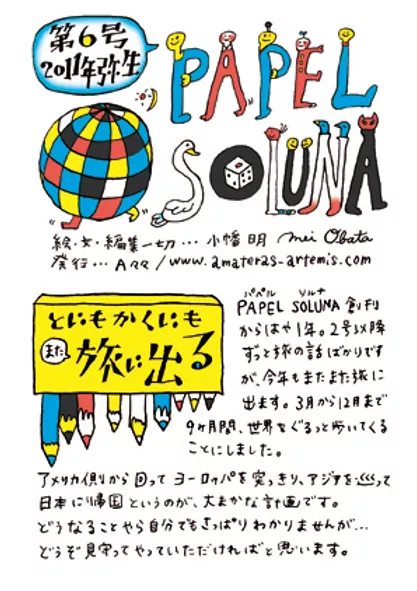 第6号
2011年弥生
PAPEL
SOLUNA
絵・文・編集一切…小幡 明 mei Obata
発行…A々々/www.amateras-artemis.com
とにもかくにも
また
旅に出る
パペル ソルナ
PAPEL SOLUNA 創刊
からはや1年。2号以降
ずっと旅の話ばかりです
が、今年もまたまた旅に
出ます。3月から12月まで
9ヶ月間、世界をぐるっと歩いてくる
ことにしました。
アメリカ側から回ってヨーロッパを突っきり、アジアを巡って
日本に帰国というのが、大まかな計画です。
どうなることやら自分でもさっぱりわかりませんが…
どうぞ見守ってやっていただければと思います。